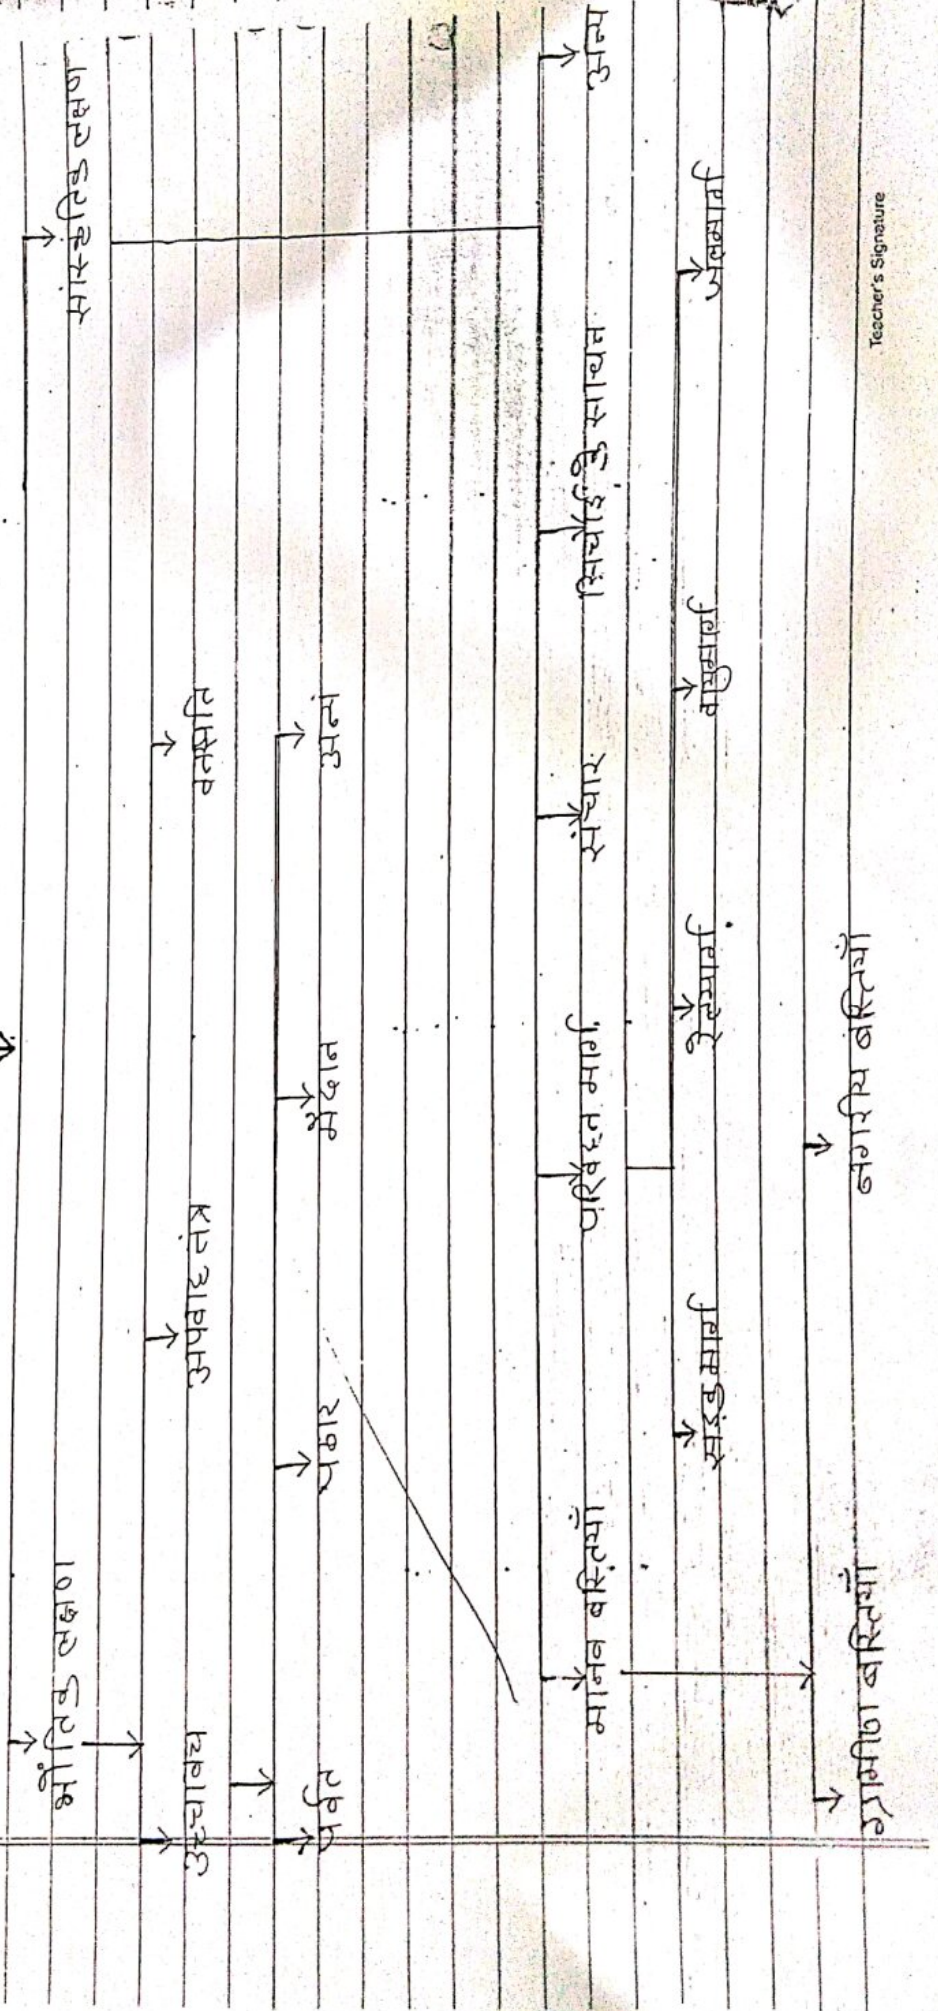 भौतिक लक्षण सांस्कृतिक लक्षण
उच्चावच अपवाह तंत्र वनस्पति
पर्वत पठार मैदान अन्य
मानव बस्तियाँ परिवहन मार्ग संचार सिंचाई के साधन अन्य
सड़क मार्ग रेलमार्ग वायुमार्ग जलमार्ग
ग्रामीण बस्तियाँ नगरीय बस्तियाँ
Teacher's Signature